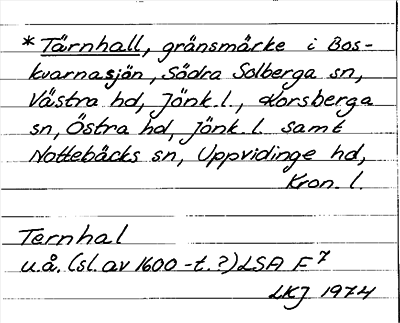 * Tärnhall, gränsmärke i Bos-
kvarnasjön, Södra Solberga sn,
Västra hd, Jönk. l., Korsberga
sn, Östra hd, Jönk. l. samt
Nottebäcks sn, Uppvidinge hd,
Kron. l.
Ternhal
u.å. (sl. av 1600-t.?) LSA F⁷
LKJ 1974